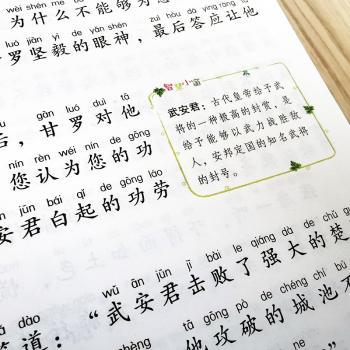 wèi shén me bù néng gòu wèi
为什么不能够为
luó jiān yì de yǎn shén zuì hòu dā yìng ràng tā
罗坚毅的眼神，最后答应让他
gān luó duì tā
后，甘罗对他
nín rèn wéi nín de gōng
您认为您的功
ān jūn bái qǐ de gōng láo
安君白起的功劳
智慧小窗
武安君：古代皇帝给予武
将的一种极高的封赏，是
给予能够以武力战胜敌
人，安邦定国的知名武将
的封号。
dá dào wǔ ān jūn jī bài le qiáng dà de chǔ
答道：“武安君击败了强大的楚
tā gōng pò de chéng chí bù
他攻破的城池不